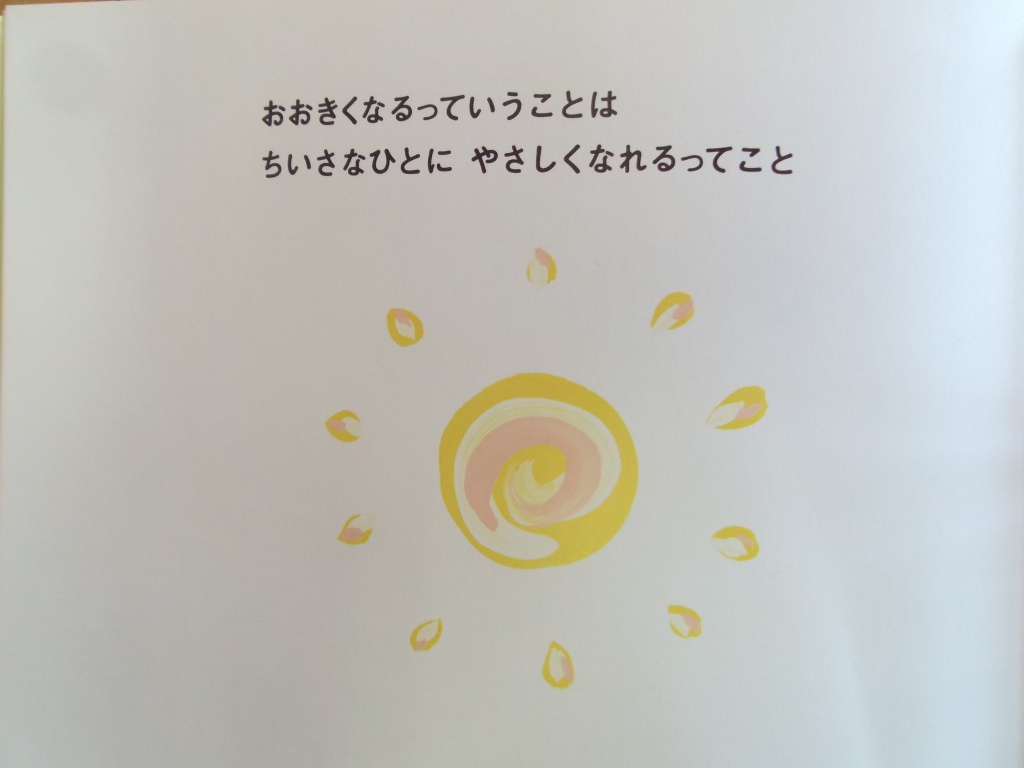 おおきくなるっていうことは
ちいさなひとに やさしくなれるってこと